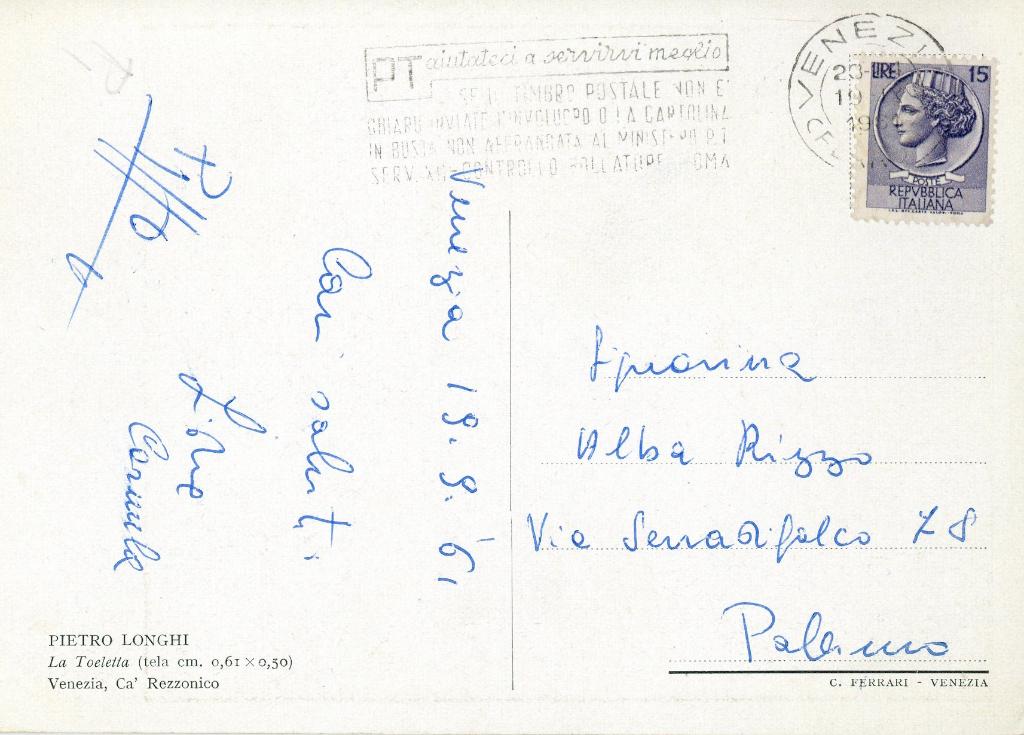 PT aiutateci a servirvi meglio
SE IL TIMBRO POSTALE NON E'
CHIARO INVIATE L'INVOLUCRO O LA CARTOLINA
IN BUSTA NON AFFRANCATA AL MINISTERO P.T.
CONTROLLO BOLLATURE ROMA
VENEZIA
23-
19
196
LIRE 15
POSTE
REPVBBLICA
ITALIANA
Venezia 19.9.'61
Cari saluti
Carmela
Signorina
Alba Rizzo
Via Serradifalco 78
Palermo
PIETRO LONGHI
La Toeletta (tela cm. 0,61 × 0,50)
Venezia, Ca' Rezzonico
C. FERRARI - VENEZIA